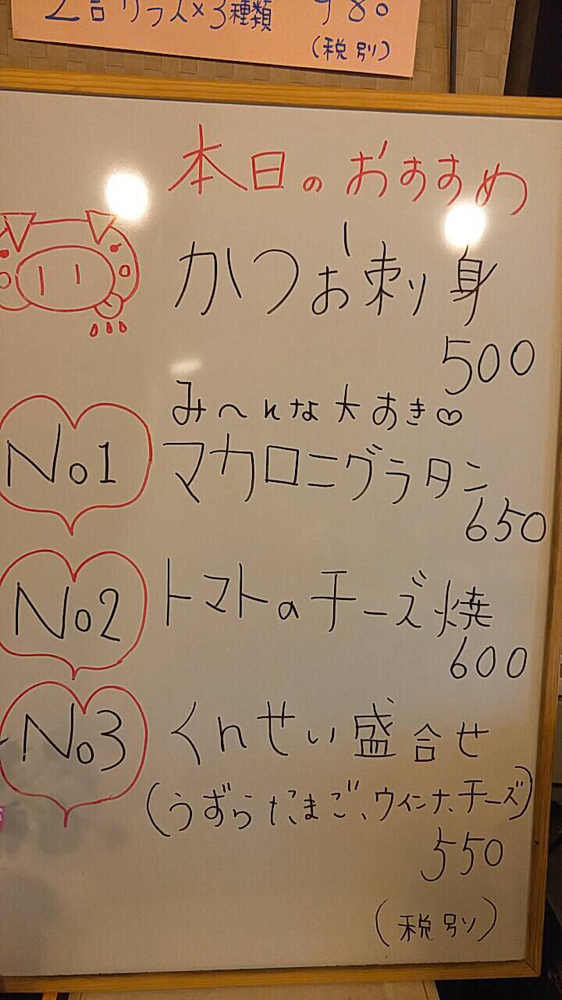 2合グラス×3種類 980
(税別)
本日のおすすめ
かつお刺り身
500
み〜んな大すき♡
No1
マカロニグラタン
650
No2
トマトのチーズ焼
600
No3
くんせい盛合せ
(うずらたまご、ウインナ、チーズ)
550
(税別)